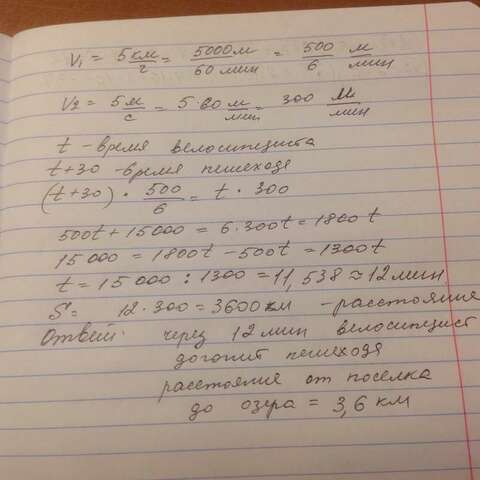 V₁ = 5км/ч = 5000м/60 мин = 500/6 м/мин
V2 = 5м/с = 5·60 м/мин = 300 м/мин
t - время велосипедиста
t+30 - время пешехода
(t+30) · 500/6 = t · 300
500t + 15000 = 6·300t = 1800t
15000 = 1800t - 500t = 1300t
t = 15000 : 1300 = 11,538 ≈ 12 мин
S = 12·300 = 3600 км - расстояние
Ответ: через 12 мин велосипедист
догонит пешехода
расстояние от поселка
до озера = 3,6 км